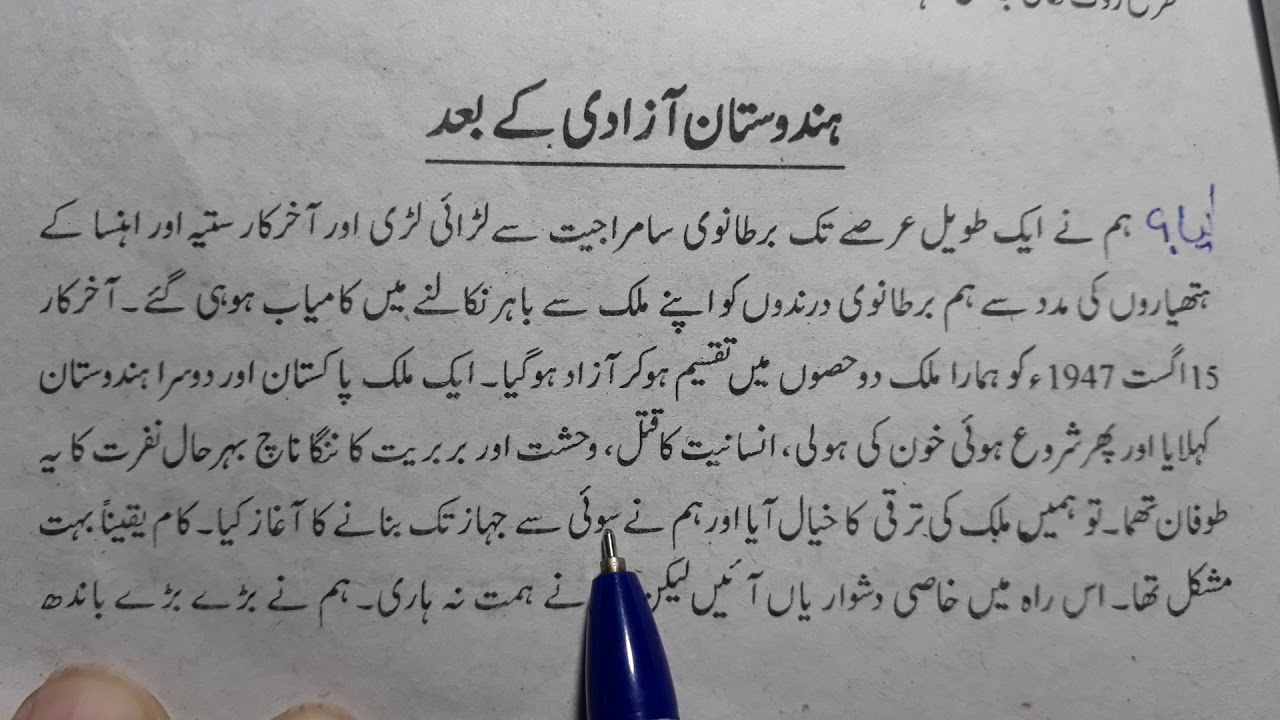 ہندوستان آزادی کے بعد
ہم نے ایک طویل عرصے تک برطانوی سامراجیت سے لڑائی لڑی اور آخرکار ستیہ اور اہنسا کے
ہتھیاروں کی مدد سے ہم برطانوی درندوں کو اپنے ملک سے باہر نکالنے میں کامیاب ہو ہی گئے۔ آخرکار
15 اگست 1947ء کو ہمارا ملک دو حصوں میں تقسیم ہو کر آزاد ہو گیا۔ ایک ملک پاکستان اور دوسرا ہندوستان
کہلایا اور پھر شروع ہوئی خون کی ہولی، انسانیت کا قتل، وحشت اور بربریت کا ننگا ناچ بہرحال نفرت کا یہ
طوفان تھما۔ تو ہمیں ملک کی ترقی کا خیال آیا اور ہم نے سوئی سے جہاز تک بنانے کا آغاز کیا۔ کام یقیناً بہت
مشکل تھا۔ اس راہ میں خاصی دشواریاں آئیں لیکن نے ہمت نہ ہاری۔ ہم نے بڑے بڑے باندھ